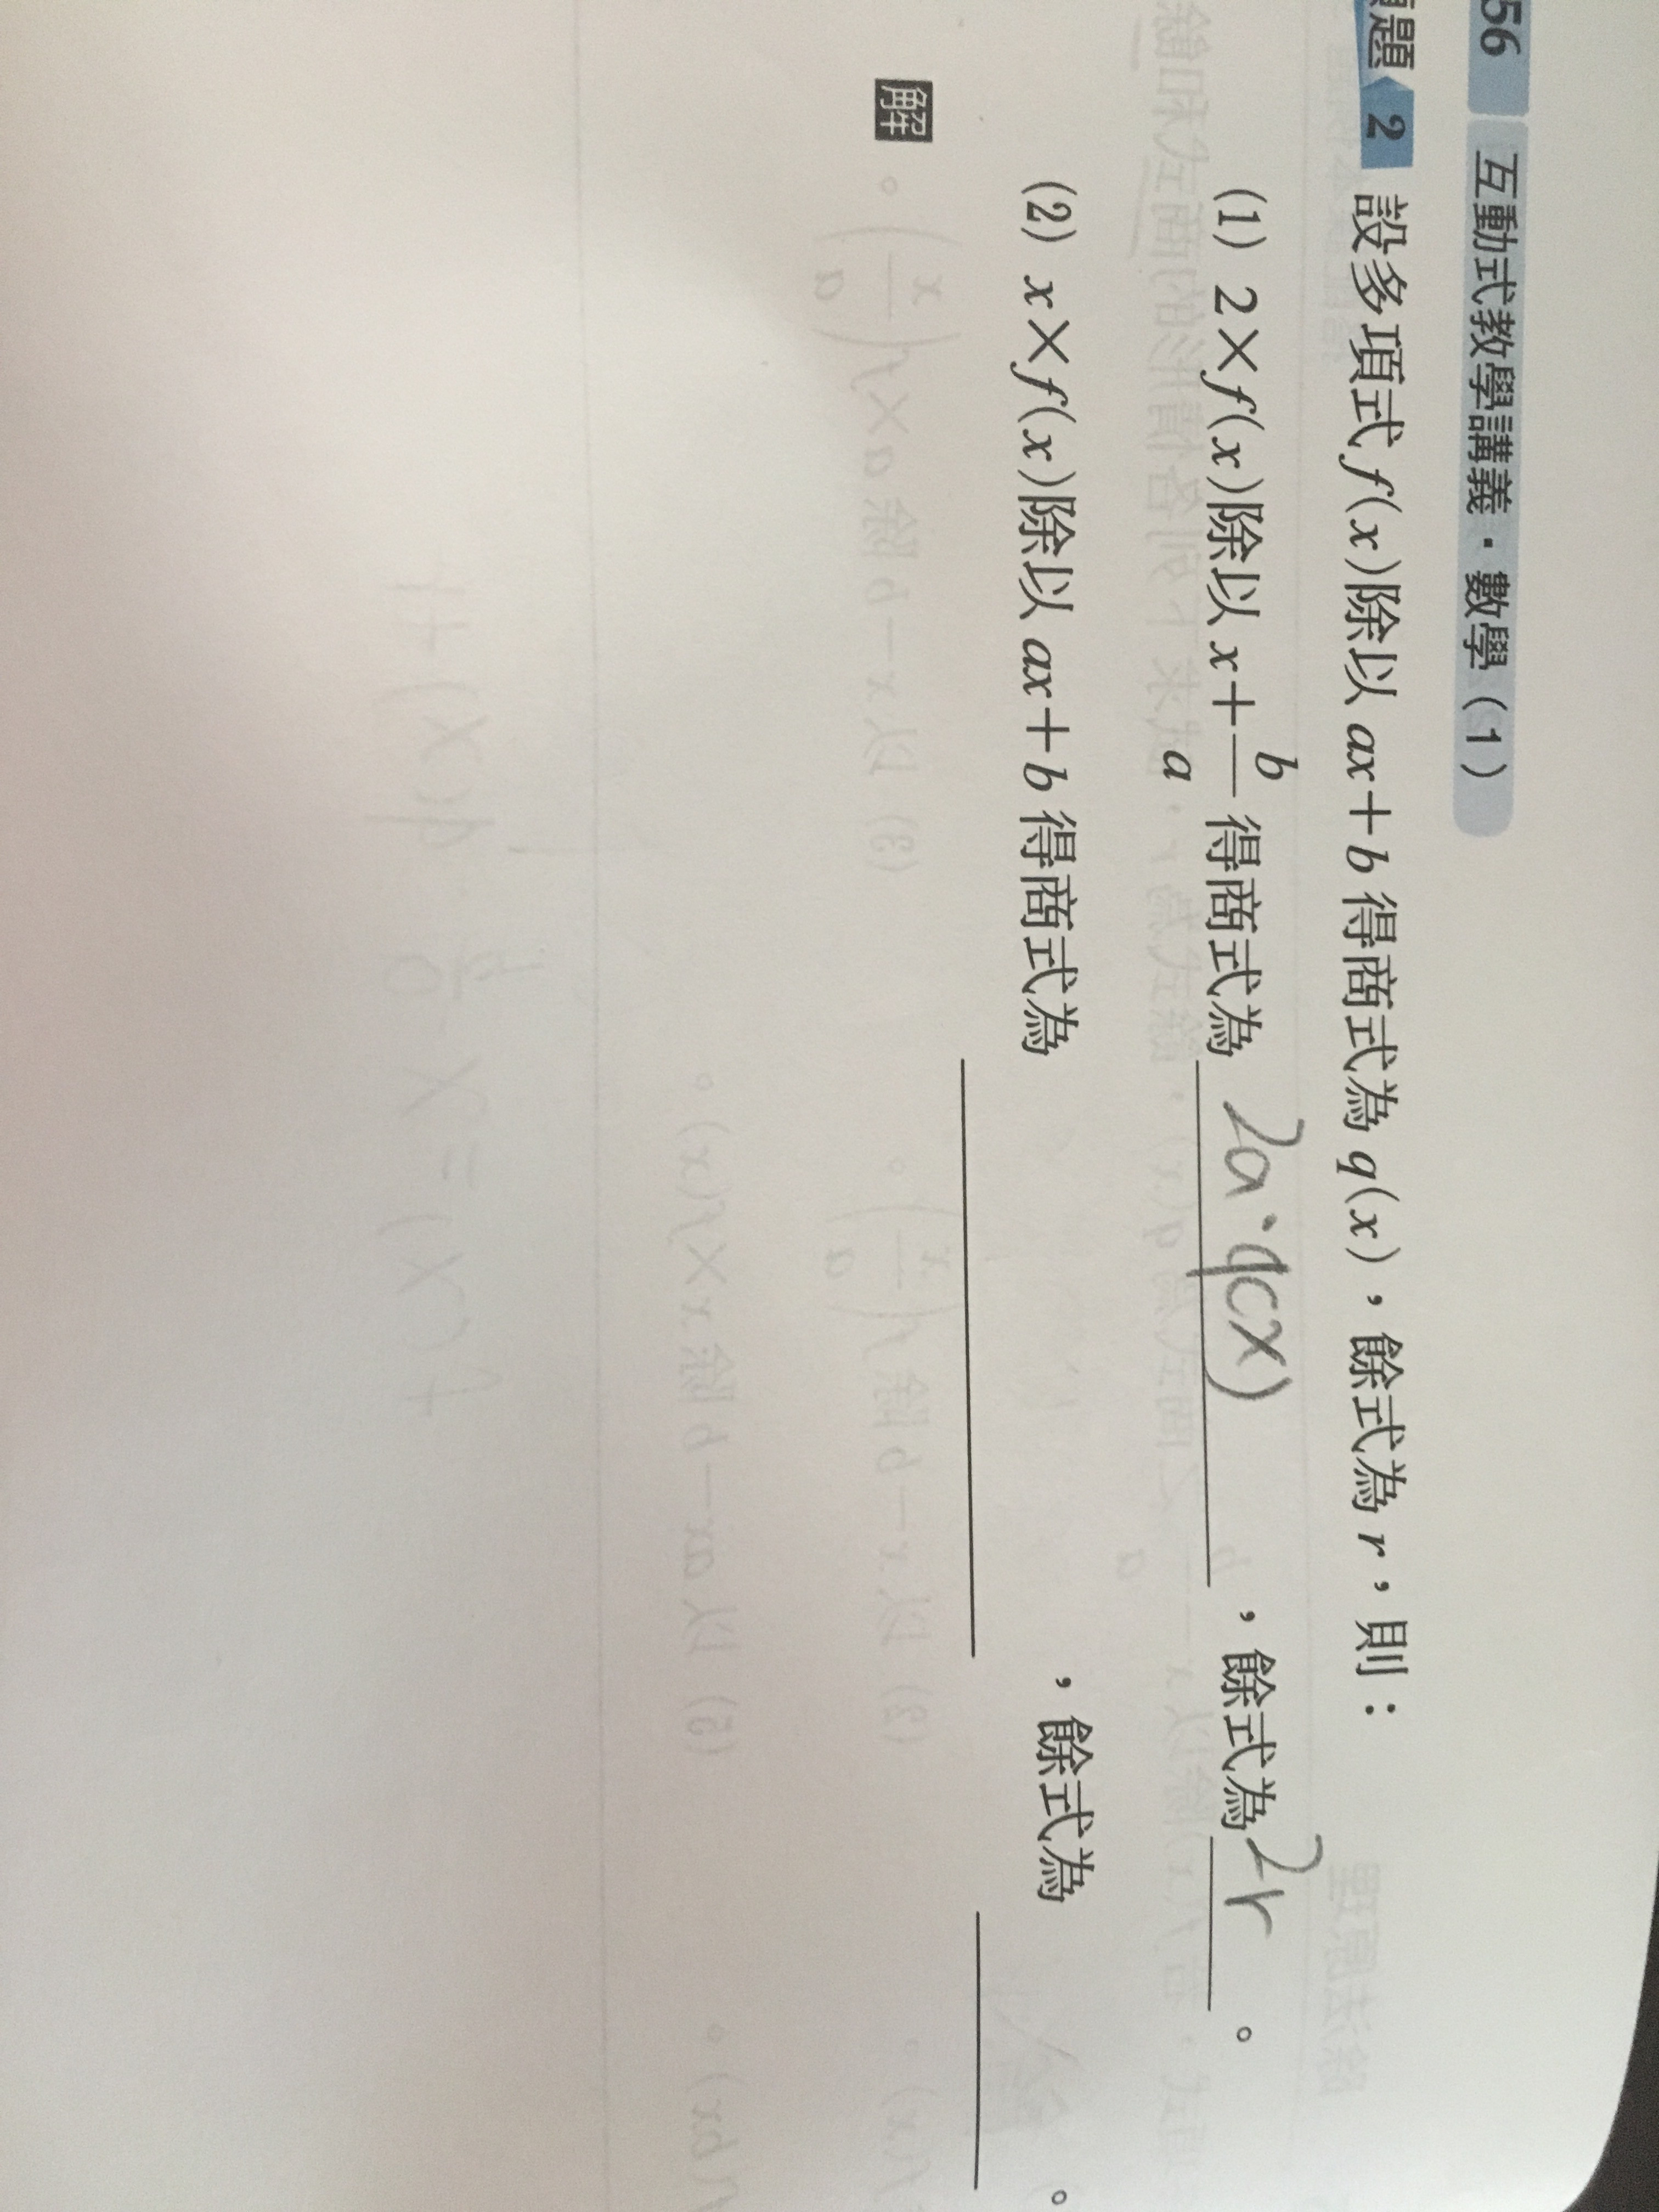 56 互動式教學講義・數學(1)
題 2 設多項式 f(x)除以 ax+b 得商式為 q(x),餘式為 r,則:
(1) 2×f(x)除以 x+b/a 得商式為 2a·q(x) ,餘式為 2r 。
(2) x×f(x)除以 ax+b 得商式為 ,餘式為 。
解